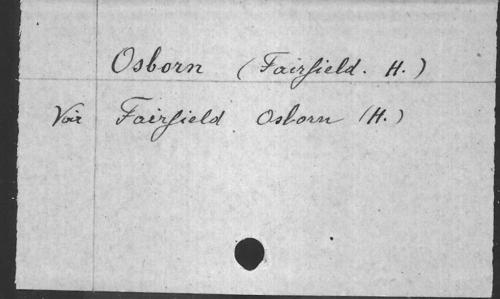 Osborn (Fairfield. H.)
Voir Fairfield Osborn (H.)